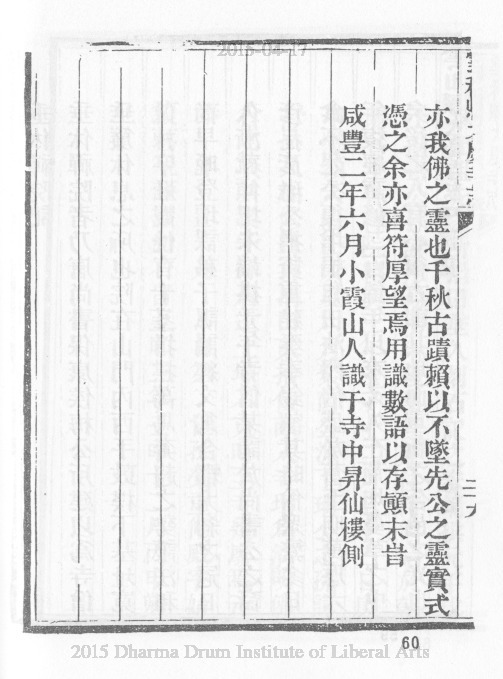 2015-04-17
亦我佛之靈也千秋古蹟賴以不墜先公之靈實式
憑之余亦喜符厚望焉用識數語以存顛末旹
咸豐二年六月小霞山人識于寺中昇仙樓側
二十九
60
2015 Dharma Drum Institute of Liberal Arts